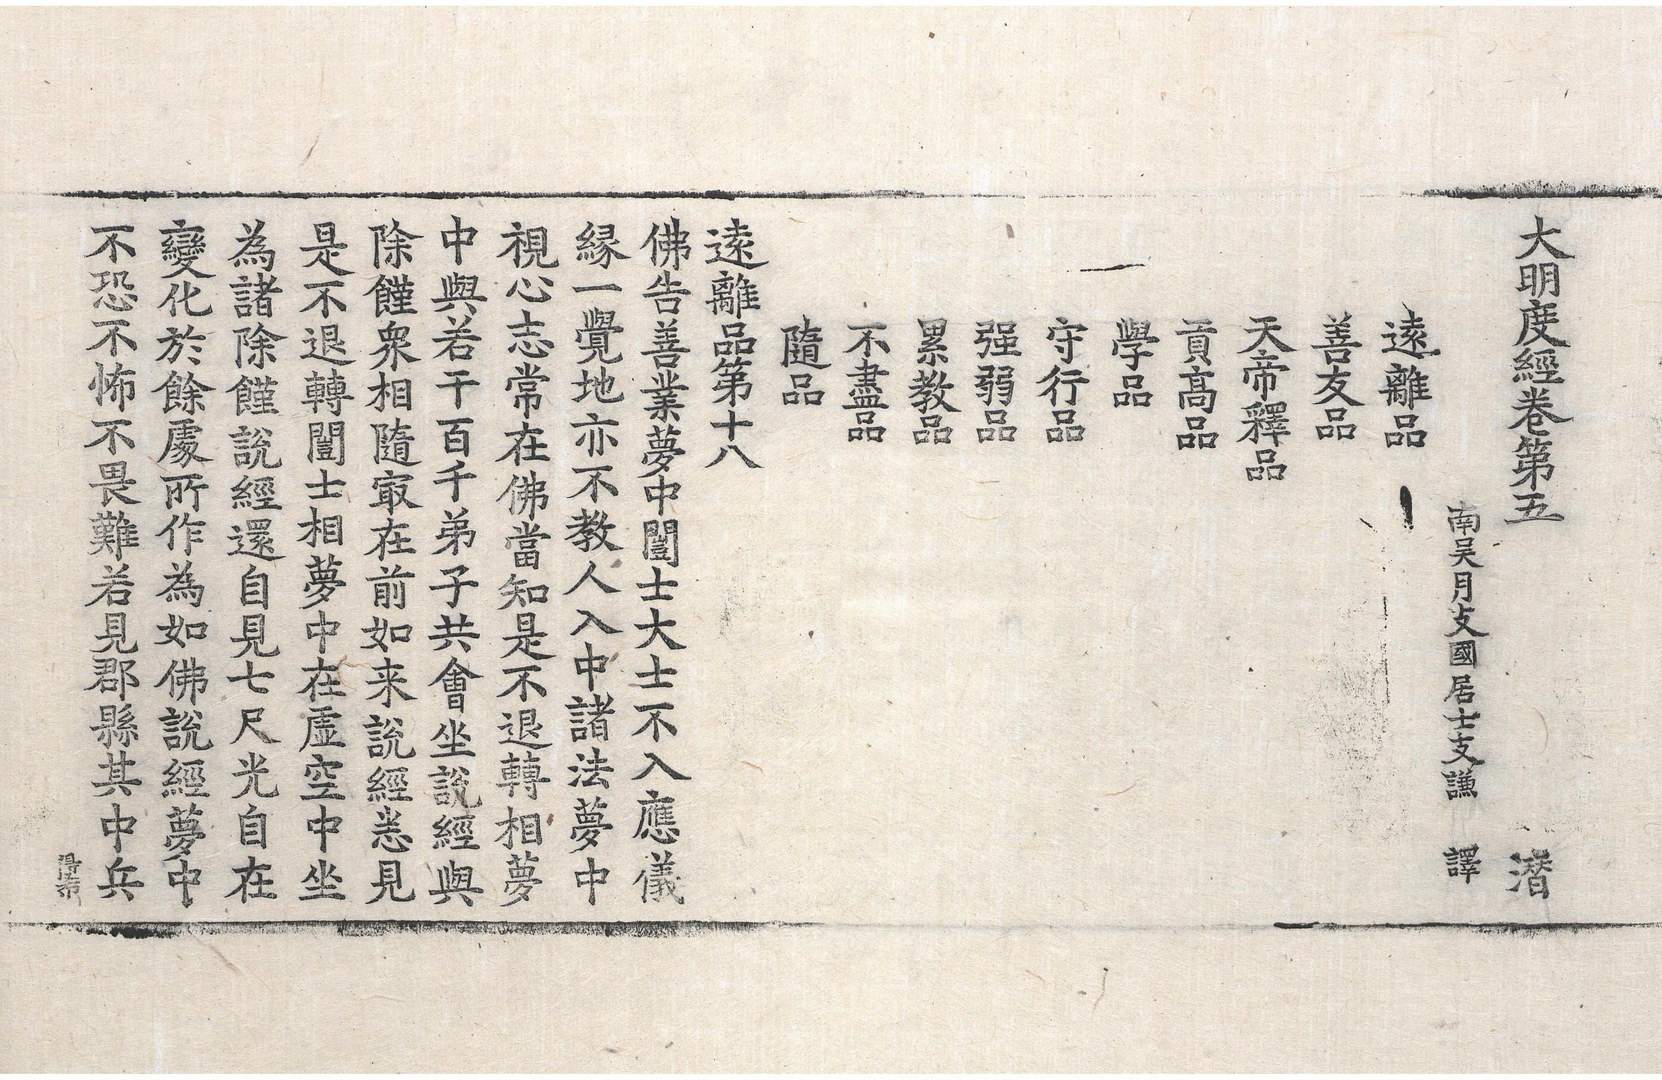 大明度經卷第五 潛
南吴月支國居士支謙 譯
遠離品
善友品
天帝釋品
貢髙品
學品
守行品
强弱品
累教品
不盡品
隨品
遠離品第十八
佛告善業夢中闓士大士不入應儀
縁一覺地亦不教人入中諸法夢中
視心志常在佛當知是不退轉相夢
中與若干百千弟子共會坐説經與
除饉衆相隨㝡在前如来説經悉見
是不退轉闓士相夢中在虚空中坐
為諸除饉説經還自見七尺光自在
變化於餘處所作為如佛説經夢中
不恐不怖不畏難若見郡縣其中兵